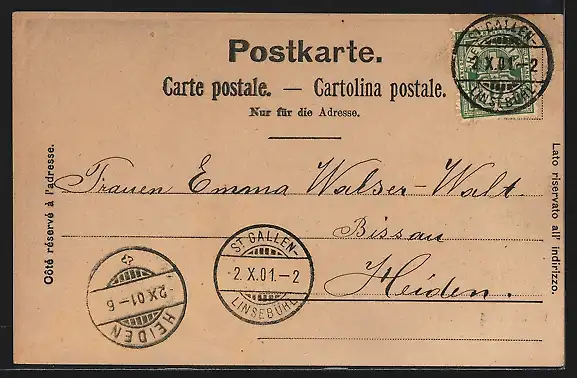 Postkarte.
Carte postale. — Cartolina postale.
Nur für die Adresse.
ST. GALLEN-
2.X.01.-2
LINSEBÜHL
Côté réservé à l'adresse.
Lato riservato all' indirizzo.
Frauen Emma Walser-Walt
Bissau
Heiden.
ST. GALLEN-
2.X.01.-2
LINSEBÜHL
2.X.01-6
HEIDEN